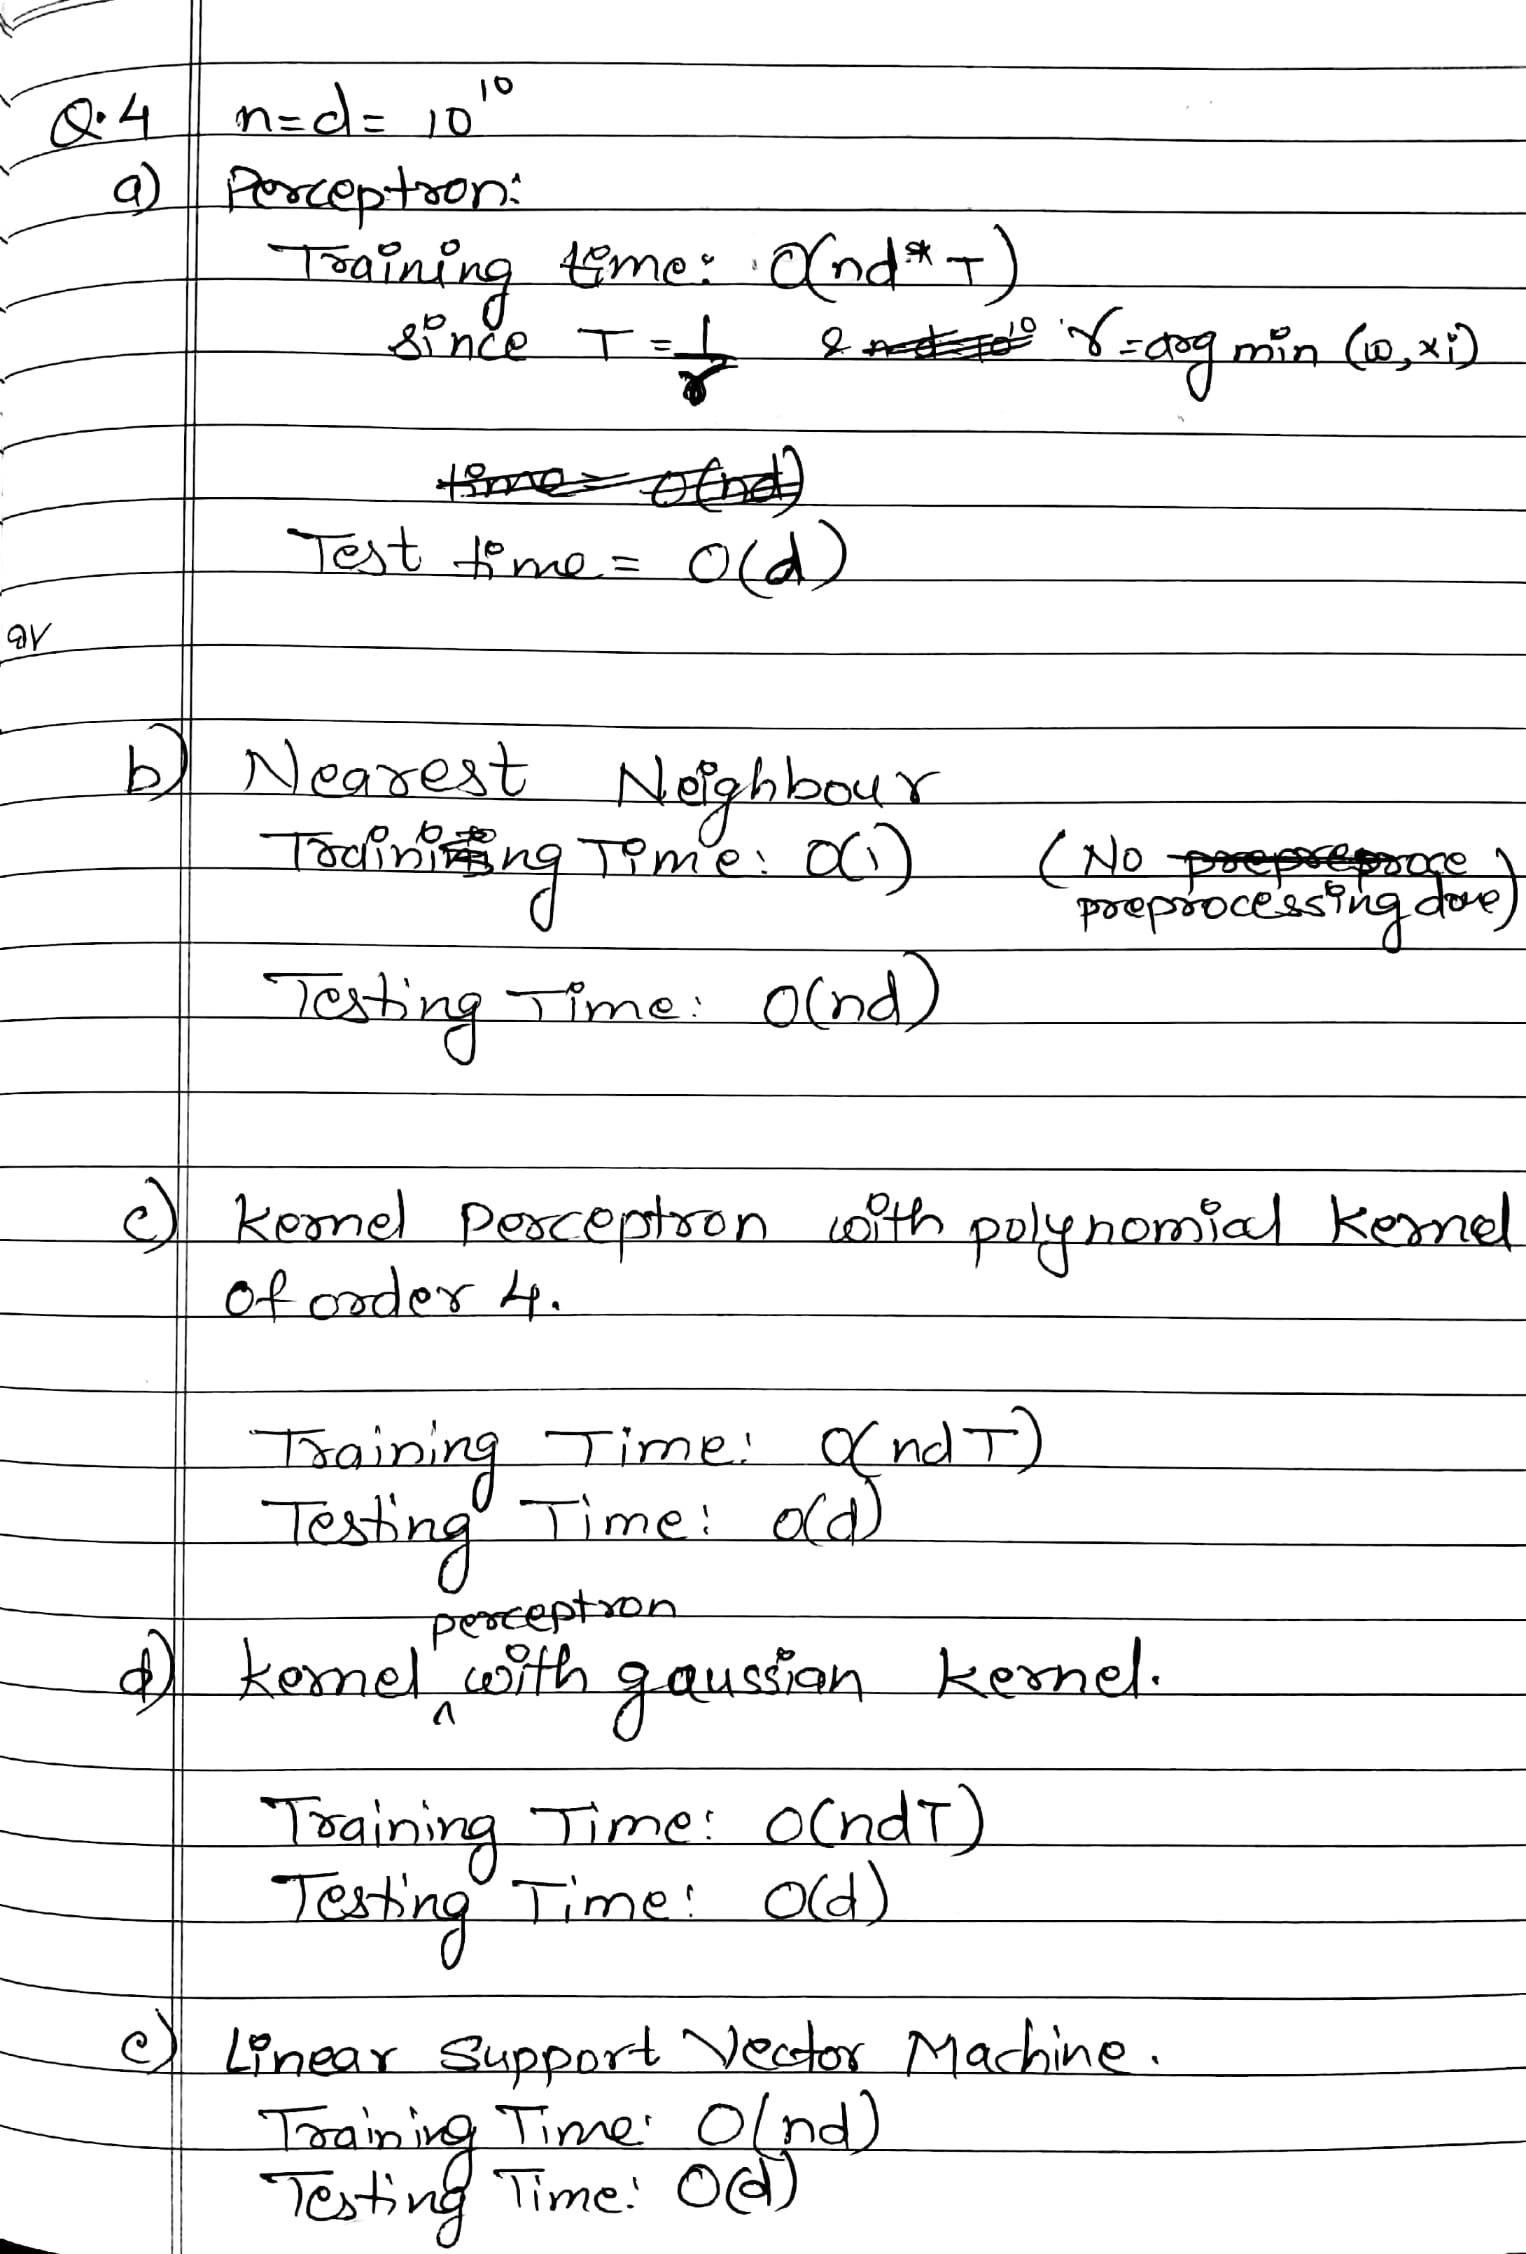 Q.4 n=d= 10^10
a) Perceptron:
Training time: O(nd*T)
since T = 1/γ & n=d=10^10 γ=arg min (w, xi)
time = O(nd)
Test time = O(d)
b) Nearest Neighbour
Training Time: O(1) (No
preprocessing done)
Testing Time: O(nd)
c) kernel perceptron with polynomial kernel
of order 4.
Training Time: O(ndT)
Testing Time: O(d)
perceptron
d) kernel ^ with gaussian kernel.
Training Time: O(ndT)
Testing Time: O(d)
e) Linear Support Vector Machine.
Training Time: O(nd)
Testing Time: O(d)